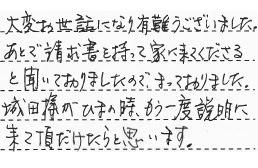 大変お世話になり有難うございました。
あとで請お書を持って家に来てくださる
と聞いておりましたので、まっておりました。
城田様がひまの時、もう一度説明に
来て頂だけたらと思います。